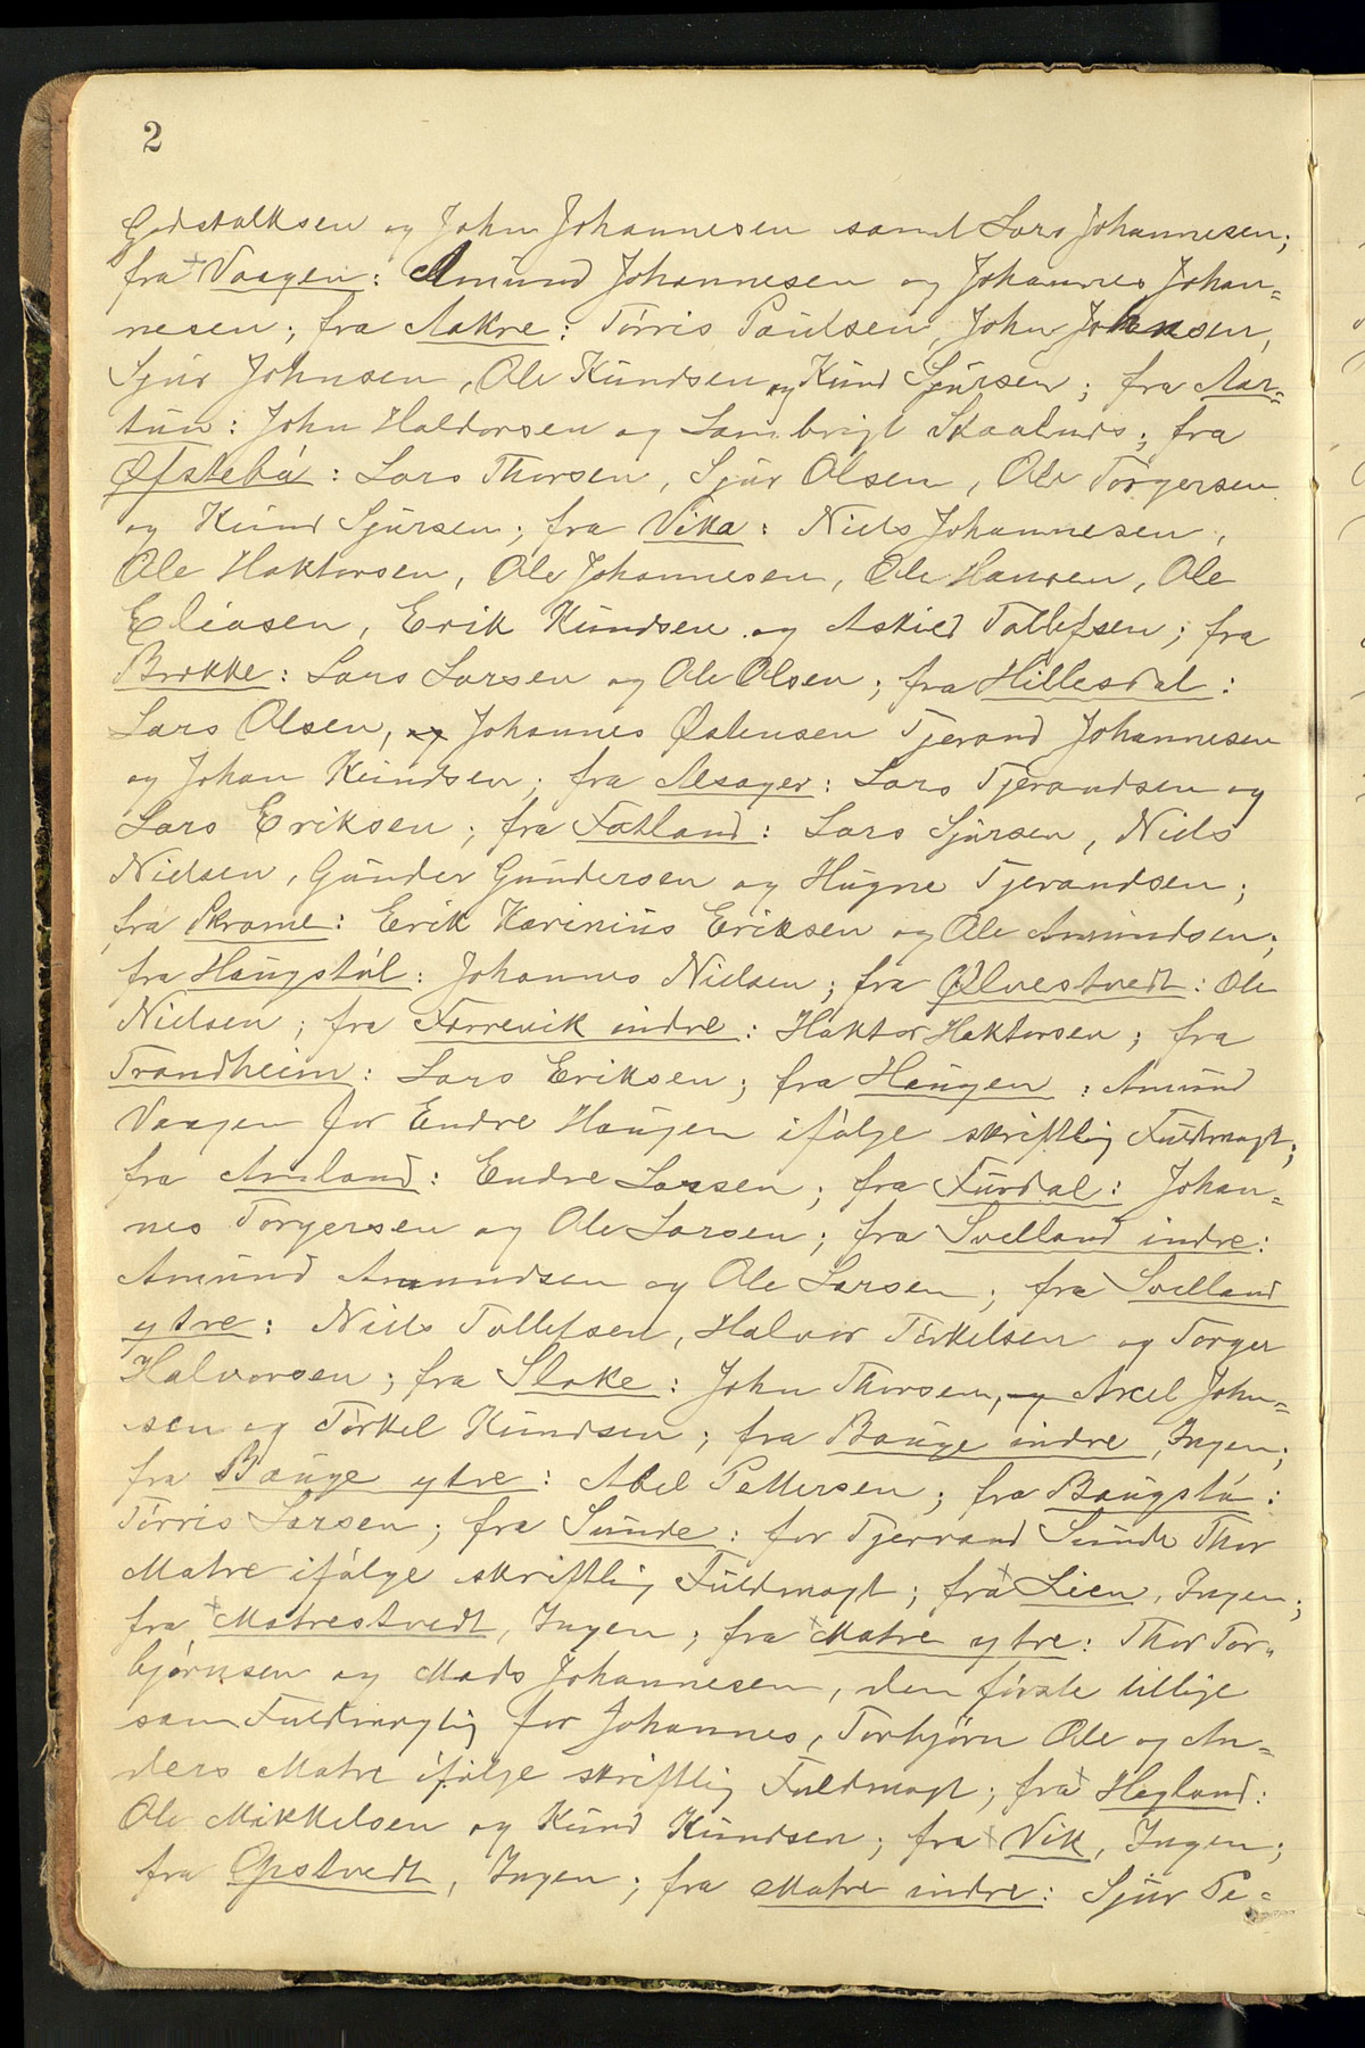 2
Godskalksen og John Johannesen samt Lars Johannesen;
fra Vaagen: Amund Johannesen og Johannes Johan-
nesen; fra Aakre: Tørris Paulsen, John Johnsen,
Sjur Johnsen, Ole Knudsen og Knud Sjursen; fra Aar-
tun: John Haldorsen og Lambrigt Skaaluds; fra
Øfstebø: Lars Thorsen, Sjur Olsen, Ole Torgersen
og Knud Sjursen; fra Vika: Niels Johannesen,
Ole Haktorsen, Ole Johannesen, Ole Hansen, Ole
Eliasen, Erik Knudsen og Askild Tollefsen; fra
Brekke: Lars Larsen og Ole Olsen; fra Hillesdal:
Lars Olsen, og Johannes Østensen Tjerand Johannesen
og Johan Knudsen; fra Alsager: Lars Tjerandsen og
Lars Eriksen; fra Fatland: Lars Sjursen, Niels
Nielsen, Gunder Gundersen og Hugne Tjerandsen;
fra Skrame: Erik Karinius Eriksen og Ole Amundsen;
fra Haugstøl: Johannes Nielsen; fra Ølvestvedt: Ole
Nielsen; fra Farrevik indre: Haktor Haktorsen; fra
Trandheim: Lars Eriksen; fra Haugen: Amund
Vaagen for Endre Haugen ifølge skriftlig Fuldmagt;
fra Amland: Endre Larsen; fra Furdal: Johan-
nes Torgersen og Ole Larsen; fra Svelland indre:
Amund Amundsen og Ole Larsen; fra Svelland
ytre: Niels Tollefsen, Halvor Tørkelsen og Torger
Halvorsen; fra Slake: John Thorsen, og Axel John-
sen og Tørkel Knudsen; fra Bauge indre, Ingen;
fra Bauge ytre: Abel Pettersen; fra Baugstø:
Tørris Larsen; fra Sunde: for Tjerrand Sunde Thor
Matre ifølge skriftlig Fuldmagt; fra Lien, Ingen;
fra Matrestvedt, Ingen; fra Matre ytre: Thor Tor-
bjørnsen og Mads Johannesen, den første tillige
som Fuldmægtig for Johannes, Torbjørn Ole og An-
ders Matre ifølge skriftlig Fuldmagt; fra Hagland:
Ole Mikkelsen og Knud Knudsen; fra Vik, Ingen;
fra Opstvedt, Ingen; fra Matre indre: Sjur Pe-